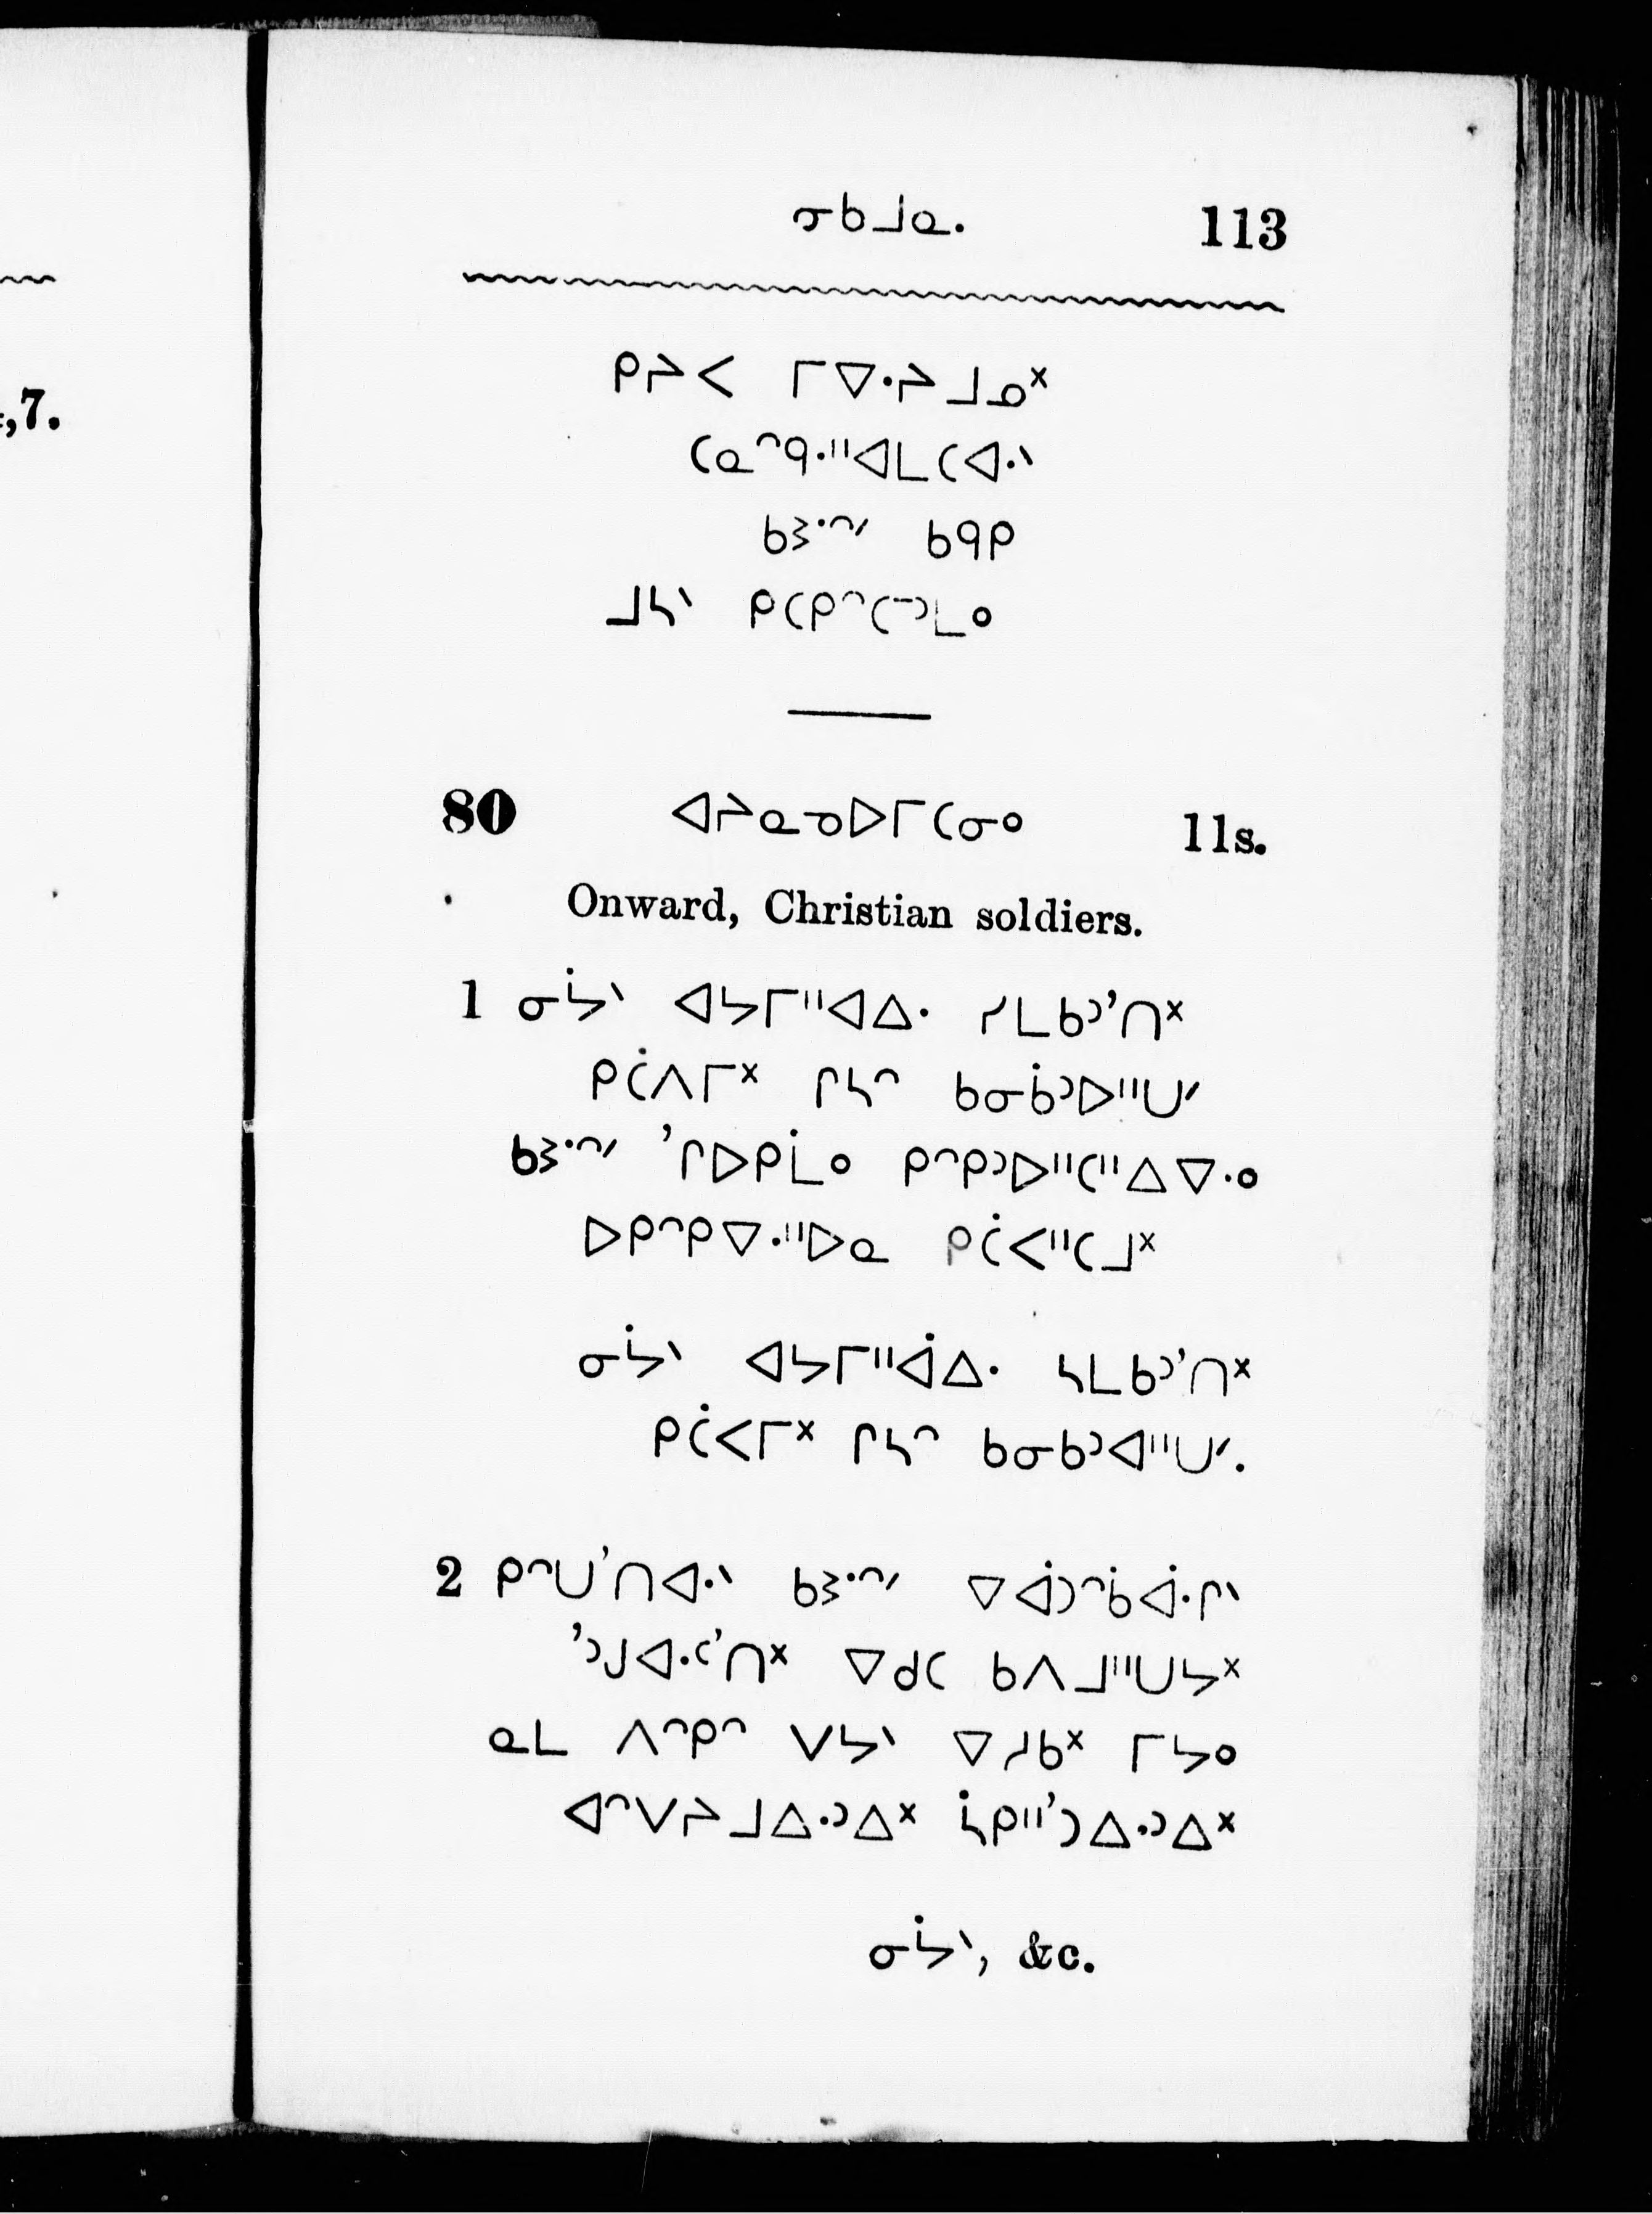 ᓂᑲᒧᓇ. 113
ᑭᔨᐸ ᒥᐁᐧᔨᒧᓄᕽ
ᑕᓇᐢᑫᐧᐦᐊᒪᑕᐊᐧᐠ
ᑲᕒᐧᐢᐟ ᑲᑫᑭ
ᒧᓴᐠ ᑭᑕᑭᐢᑕᐪᒪᐤ
80 ᐊᔨᓇᓀᐅᒥᑕᓂᐤ 11s.
Onward, Christian soldiers.
1 ᓂᔮᐠ ᐊᔭᒥᐦᐊᐃᐧ ᓯᒪᑲᐣᐨᑎᕽ
ᑭᑖᐱᒥᕽ ᒋᓴᐢ ᑲᓂᑳᐣᐅᐦᑌᐟ
ᑲᕒᐧᐢᐟ ᐨᒋᐅᑭᒫᐤ ᑭᐢᑭᐣᐅᐦᑕᐦᐃᐁᐧᐤ
ᐅᑭᐢᑭᐁᐧᐦᐅᓇ ᑭᑖᐸᐦᑕᒧᕽ
ᓂᔮᐠ ᐊᔭᒥᐦᐋᐃᐧ ᓴᒪᑲᐣᐨᑎᕽ
ᑭᑖᐸᒥᕽ ᒋᓴᐢ ᑲᓂᑲᐣᐊᐦᑌᐟ.
2 ᑭᐢᑌᐨᑎᐊᐧᐠ ᑲᕒᐧᐢᐟ ᐁᐋᑐᐢᑳᐋᐧᒋᐠ
ᐨᐣᒍᐊᐧᑦᐨᑎᕽ ᐁᑯᑕ ᑲᐱᒧᐦᑌᔭᕽ
ᓇᒪ ᐱᐢᑭᐢ ᐯᔭᐠ ᐁᓱᑲᕽ ᒥᔭᐤ
ᐊᐢᐯᔨᒧᐃᐧᐣᐃᕽ ᓵᑭᐦᐨᑐᐃᐧᐣᐃᕽ
ᓂᔮᐠ, &c.